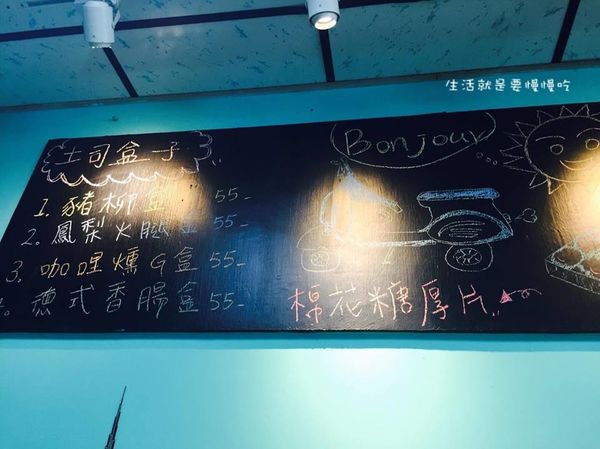 生活就是要慢慢吃
土司盒子
1. 豬柳盒 55-
2. 鳳梨火腿盒 55-
3. 咖哩燻G盒 55-
德式香腸盒 55-
Bonjour
棉花糖厚片